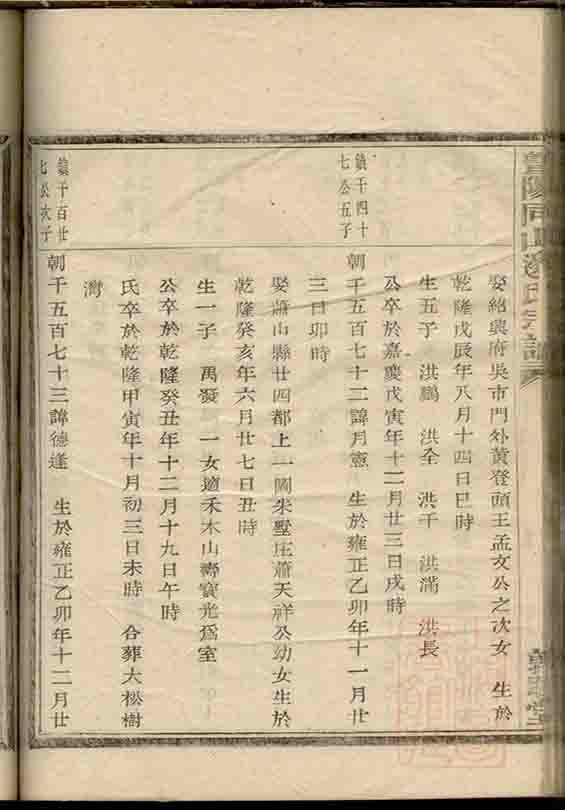 暨陽同山邊氏宗譜
娶紹興府吳市門外黃登頭王孟文公之次女 生於
乾隆戊辰年八月十四日巳時
生五子 洪鵬 洪全 洪千 洪滿 洪長
公卒於嘉慶戊寅年十二月廿三日戌時
鎮千四十
七公五子
朝千五百七十二諱月憲 生於雍正乙卯年十一月廿
三日卯時
娶蕭山縣廿四都上一圖朱墅庄蕭天祥公幼女生於
乾隆癸亥年六月廿七日丑時
生一子 萬發 一女適禾木山壽寶光爲室
公卒於乾隆癸丑年十二月十九日午時
氏卒於乾隆甲寅年十月初三日未時 合葬大松樹
灣
鎮千百廿
七公次子
朝千五百七十三諱德逢 生於雍正乙卯年十二月廿